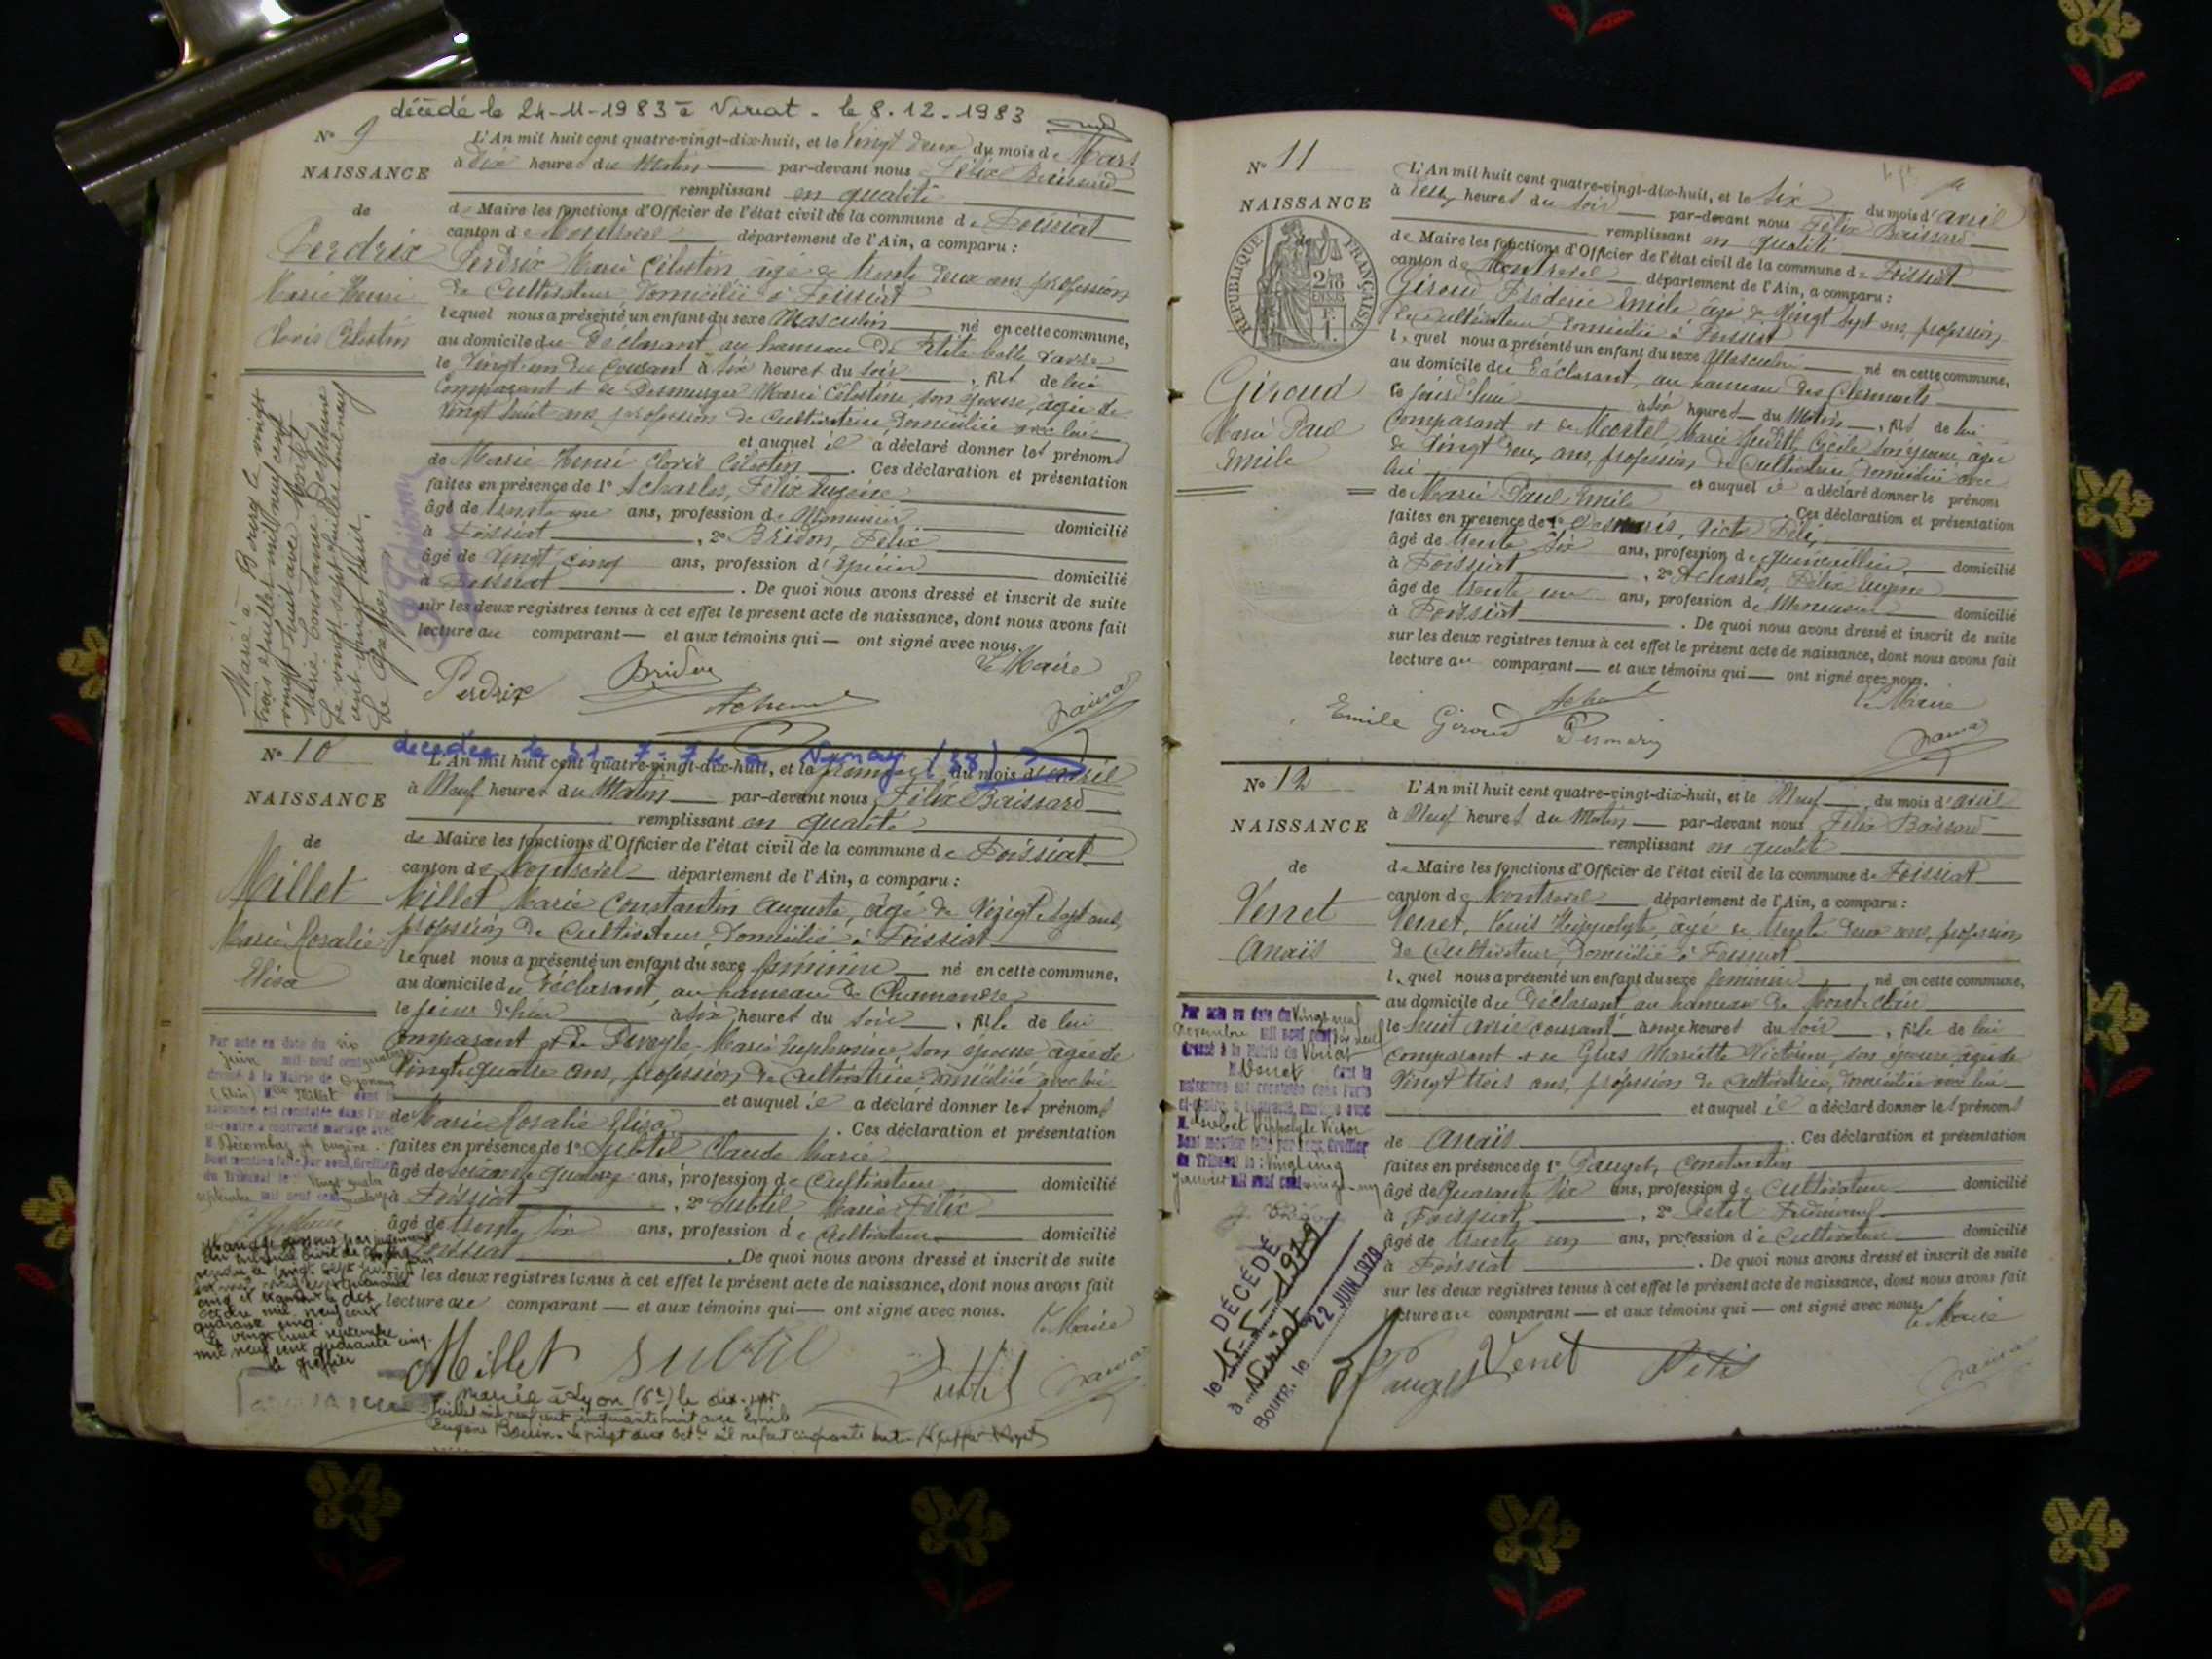 décédé le 24-11-1983 à Viriat - le 8.12.1983
N° 9
NAISSANCE
de
Perdrix
Marie Henri
Clovis Célestin
L'An mil huit cent quatre-vingt-dix-huit, et le Vingt deux du mois de Mars
à dix heures du Matin par-devant nous Félix Baissard
remplissant en qualité
de Maire les fonctions d'Officier de l'état civil de la commune de Foissiat
canton de Montrevel département de l'Ain, a comparu :
Perdrix Marie Célestin âgé de trente deux ans profession
de Cultivateur, domicilié à Foissiat
lequel nous a présenté un enfant du sexe Masculin né en cette commune,
au domicile du Déclarant au hameau de
le Vingt-un du Courant à six heures du soir, fils de lui
Comparant et de Marie Célestine, son épouse, âgée de
Vingt huit ans, profession de Cultivatrice, domiciliée avec lui
et auquel il a déclaré donner les prénoms
de Marie Henri Clovis Célestin. Ces déclaration et présentation
faites en présence de 1° Acharlos, Félix Eugène
âgé de trente un ans, profession de Menuisier domicilié
à Foissiat, 2° Bridon, Félix
âgé de Vingt cinq ans, profession d'Epicier domicilié
à Foissiat. De quoi nous avons dressé et inscrit de suite
sur les deux registres tenus à cet effet le présent acte de naissance, dont nous avons fait
lecture au comparant et aux témoins qui ont signé avec nous.
Le Maire
Perdrix Bridon
Marié à Bourg le vingt
trois juillet mil neuf cent
vingt huit avec
Marie Constance Delphine
Le vingt-sept juillet mil neuf
cent vingt huit.
Le Greffier
N° 10
NAISSANCE
de
Millet
Marie Rosalie
Elisa
décédée le 31-7-74 à (38)
L'An mil huit cent quatre-vingt-dix-huit, et le premier du mois d'avril
à Neuf heures du Matin par-devant nous Félix Baissard
remplissant en qualité
de Maire les fonctions d'Officier de l'état civil de la commune de Foissiat
canton de Montrevel département de l'Ain, a comparu :
Millet Marie Constantin Auguste, âgé de Vingt sept ans,
profession de Cultivateur, domicilié à Foissiat
lequel nous a présenté un enfant du sexe féminin né en cette commune,
au domicile du Déclarant, au hameau de Chamandre
le jour d'hier à six heures du soir, fille de lui
comparant et de Marie Euphrosine, son épouse âgée de
Vingt quatre ans, profession de Cultivatrice domiciliée avec lui
et auquel il a déclaré donner les prénoms
de Marie Rosalie Elisa. Ces déclaration et présentation
faites en présence de 1° Subtil Claude Marie
âgé de soixante quatorze ans, profession de Cultivateur domicilié
à Foissiat, 2° Subtil, Marie Félix
âgé de trente six ans, profession de Cultivateur domicilié
à Foissiat. De quoi nous avons dressé et inscrit de suite
sur les deux registres tenus à cet effet le présent acte de naissance, dont nous avons fait
lecture au comparant et aux témoins qui ont signé avec nous.
Le Maire
Millet Subtil Subtil
Par acte en date du six
juin mil neuf cent quatorze
dressé à la Mairie de Oyonnax
(Ain) Mlle Millet dont la
naissance est constatée dans l'acte
ci-contre a contracté mariage avec
M. Eugène.
Dont mention faite par nous, Greffier
du Tribunal le Vingt quatre
septembre mil neuf cent quatorze
Mariage dissous par jugement
du tribunal civil de
rendu le vingt sept
mil neuf cent quarante
cinq et transcrit le dix
mil neuf cent
quarante cinq.
Le vingt neuf septembre
mil neuf cent quarante cinq.
Le Greffier
Mariée à Lyon (6e) le dix-sept
juillet mil neuf cent cinquante huit avec Emile
Eugène Le vingt deux oct. mil neuf cent cinquante huit
N° 11
NAISSANCE
de
RÉPUBLIQUE FRANÇAISE
Giroud
Marie Paul
Emile
L'An mil huit cent quatre-vingt-dix-huit, et le Six du mois d'avril
à deux heures du soir par-devant nous Félix Baissard
remplissant en qualité
de Maire les fonctions d'Officier de l'état civil de la commune de Foissiat
canton de Montrevel département de l'Ain, a comparu :
Giroud Frédéric Emile âgé de Vingt sept ans, profession
de Cultivateur, domicilié à Foissiat
lequel nous a présenté un enfant du sexe Masculin né en cette commune,
au domicile du Déclarant, au hameau des Clermonts
le jour d'hui à six heures du Matin, fils de lui
Comparant et de Marie Judith Cécile son épouse âgée
de Vingt deux ans, profession de Cultivatrice domiciliée avec
lui et auquel il a déclaré donner le prénoms
de Marie Paul Emile. Ces déclaration et présentation
faites en présence de 1° Victor Félix
âgé de trente six ans, profession de quincaillier domicilié
à Foissiat, 2° Acharlos, Félix Eugène
âgé de trente un ans, profession de Menuisier domicilié
à Foissiat. De quoi nous avons dressé et inscrit de suite
sur les deux registres tenus à cet effet le présent acte de naissance, dont nous avons fait
lecture au comparant et aux témoins qui ont signé avec nous.
Le Maire
Emile Giroud
N° 12
NAISSANCE
de
Venet
Anaïs
L'An mil huit cent quatre-vingt-dix-huit, et le Neuf du mois d'avril
à Neuf heures du Matin par-devant nous Félix Baissard
remplissant en qualité
de Maire les fonctions d'Officier de l'état civil de la commune de Foissiat
canton de Montrevel département de l'Ain, a comparu :
Venet, Louis Hippolyte, âgé de trente deux ans, profession
de Cultivateur, domicilié à Foissiat
lequel nous a présenté un enfant du sexe féminin né en cette commune,
au domicile du Déclarant au hameau de
le huit avril courant à onze heures du soir, fille de lui
comparant et de Gras Mariette Victorine, son épouse âgée de
Vingt trois ans, profession de Cultivatrice, domiciliée avec lui
et auquel il a déclaré donner les prénoms
de Anaïs. Ces déclaration et présentation
faites en présence de 1° Pauget, Constantin
âgé de quarante six ans, profession de Cultivateur domicilié
à Foissiat, 2° Petit
âgé de trente un ans, profession de Cultivateur domicilié
à Foissiat. De quoi nous avons dressé et inscrit de suite
sur les deux registres tenus à cet effet le présent acte de naissance, dont nous avons fait
lecture au comparant et aux témoins qui ont signé avec nous.
Le Maire
Pauget Venet Petit
Par acte en date du Vingt neuf
novembre mil neuf cent dix neuf
dressé à la Mairie de Viriat
M. Venet dont la
naissance est constatée dans l'acte
ci-contre a contracté mariage avec
M. Hippolyte Victor
Dont mention faite par nous, Greffier
du Tribunal le Vingt cinq
janvier mil neuf cent vingt
DÉCÉDÉ
le 15-5-1979
à Viriat
Bourg, le 22 JUIN 1979